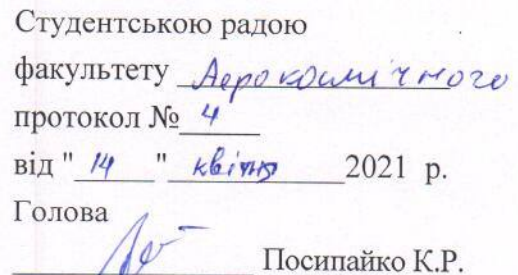 Студентською радою
факультету Аерокосмічного
протокол № 4
від " 14 " квітня 2021 р.
Голова
Посипайко К.Р.